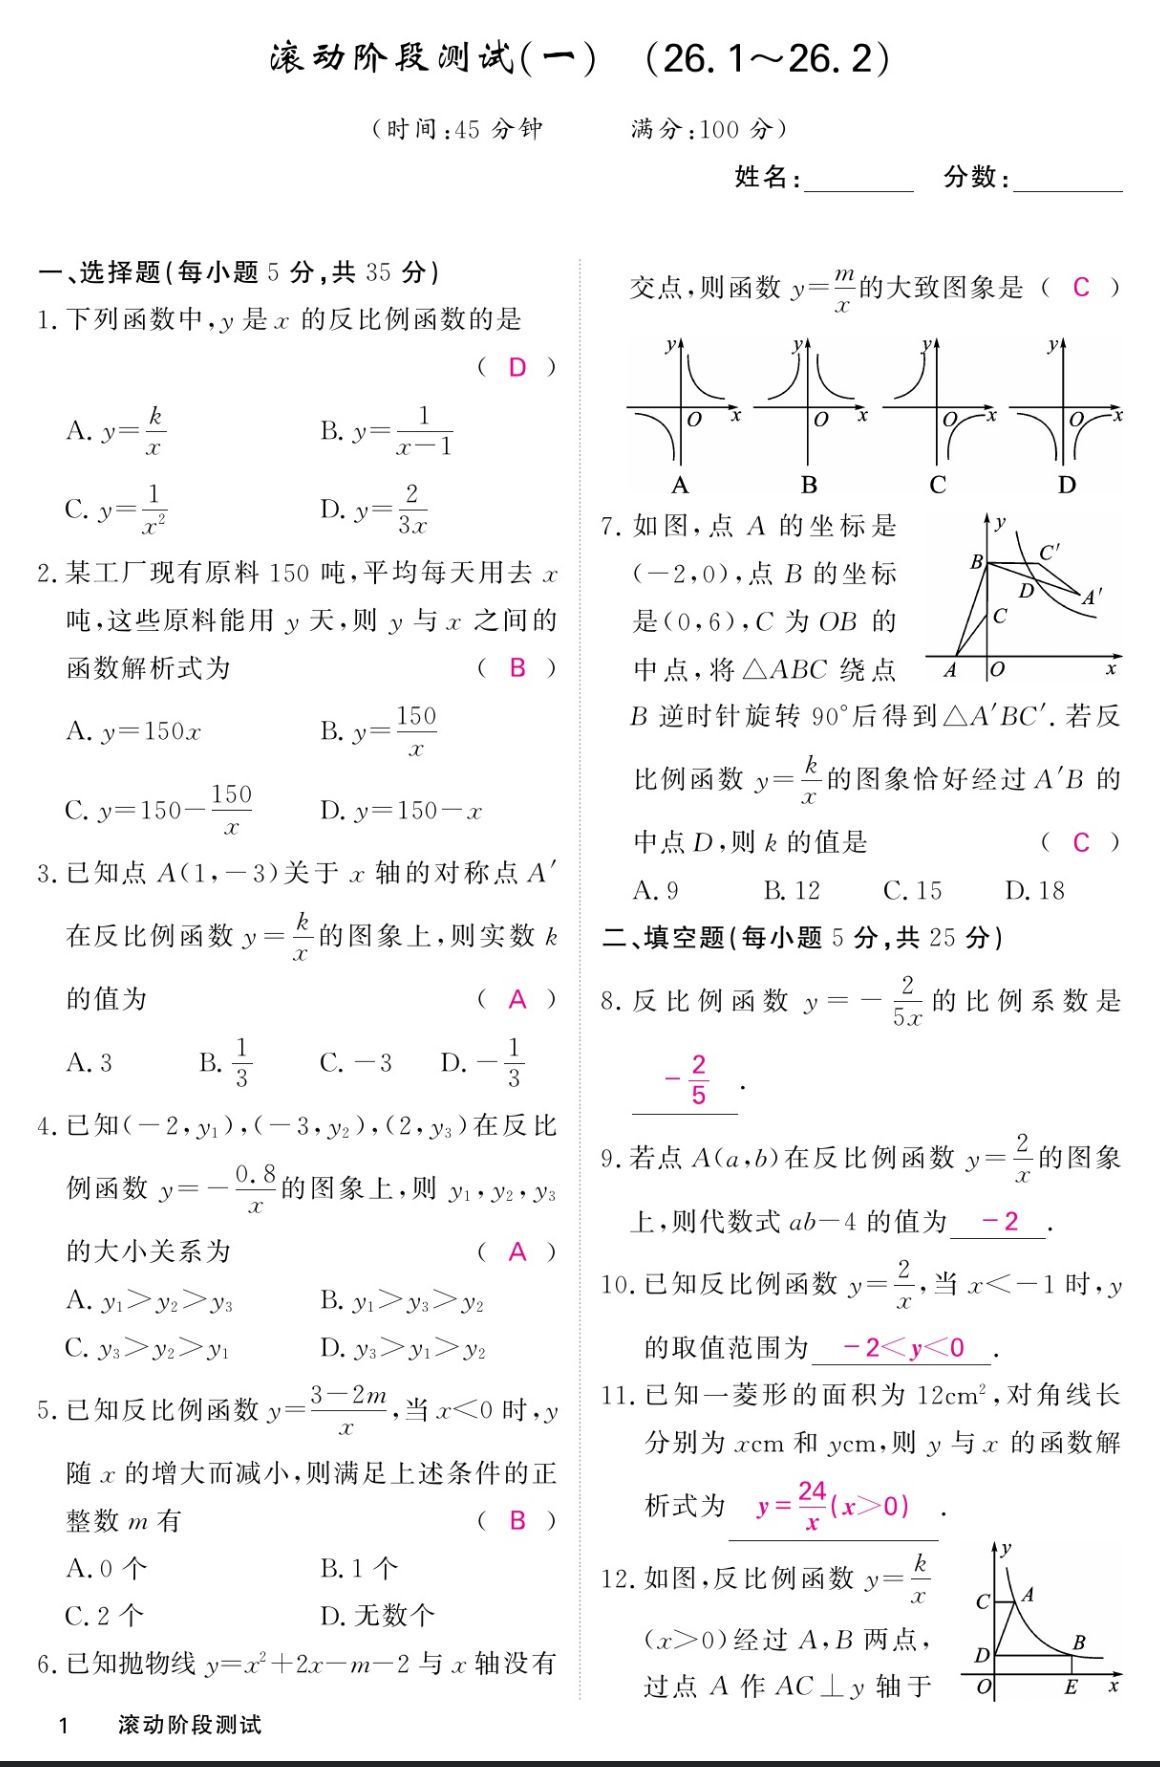 滚动阶段测试(一) (26.1～26.2)
(时间:45 分钟 满分:100 分)
姓名:________ 分数:________
一、选择题(每小题 5 分,共 35 分)
1. 下列函数中,y 是 x 的反比例函数的是
( D )
A. y=k/x B. y=1/(x-1)
C. y=1/x² D. y=2/(3x)
2. 某工厂现有原料 150 吨,平均每天用去 x
吨,这些原料能用 y 天,则 y 与 x 之间的
函数解析式为 ( B )
A. y=150x B. y=150/x
C. y=150-150/x D. y=150-x
3. 已知点 A(1,-3)关于 x 轴的对称点 A′
在反比例函数 y=k/x的图象上,则实数 k
的值为 ( A )
A. 3 B. 1/3 C. -3 D. -1/3
4. 已知(-2,y₁),(-3,y₂),(2,y₃)在反比
例函数 y=-0.8/x的图象上,则 y₁,y₂,y₃
的大小关系为 ( A )
A. y₁>y₂>y₃ B. y₁>y₃>y₂
C. y₃>y₂>y₁ D. y₃>y₁>y₂
5. 已知反比例函数 y=(3-2m)/x,当 x<0 时,y
随 x 的增大而减小,则满足上述条件的正
整数 m 有 ( B )
A. 0 个 B. 1 个
C. 2 个 D. 无数个
6. 已知抛物线 y=x²+2x-m-2 与 x 轴没有
交点,则函数 y=m/x的大致图象是 ( C )
y y y y
O x O x O x O x
A B C D
7. 如图,点 A 的坐标是
(-2,0),点 B 的坐标
是(0,6),C 为 OB 的
中点,将△ABC 绕点
B 逆时针旋转 90°后得到△A′BC′. 若反
比例函数 y=k/x的图象恰好经过 A′B 的
中点 D,则 k 的值是 ( C )
A. 9 B. 12 C. 15 D. 18
y
B C′
D A′
C
A O x
二、填空题(每小题 5 分,共 25 分)
8. 反比例函数 y=-2/(5x)的比例系数是
-2/5 .
9. 若点 A(a,b)在反比例函数 y=2/x的图象
上,则代数式 ab-4 的值为 -2 .
10. 已知反比例函数 y=2/x,当 x<-1 时,y
的取值范围为 -2<y<0 .
11. 已知一菱形的面积为 12cm²,对角线长
分别为 xcm 和 ycm,则 y 与 x 的函数解
析式为 y=24/x(x>0) .
12. 如图,反比例函数 y=k/x
(x>0)经过 A,B 两点,
过点 A 作 AC⊥y 轴于
y
C A
D B
O E x
1 滚动阶段测试